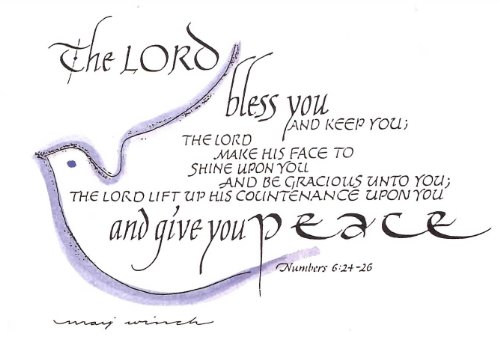 The LORD
bless you
AND KEEP YOU;
THE LORD
MAKE HIS FACE TO
SHINE UPON YOU
AND BE GRACIOUS UNTO YOU;
THE LORD LIFT UP HIS COUNTENANCE UPON YOU
and give you peace
Numbers 6:24-26